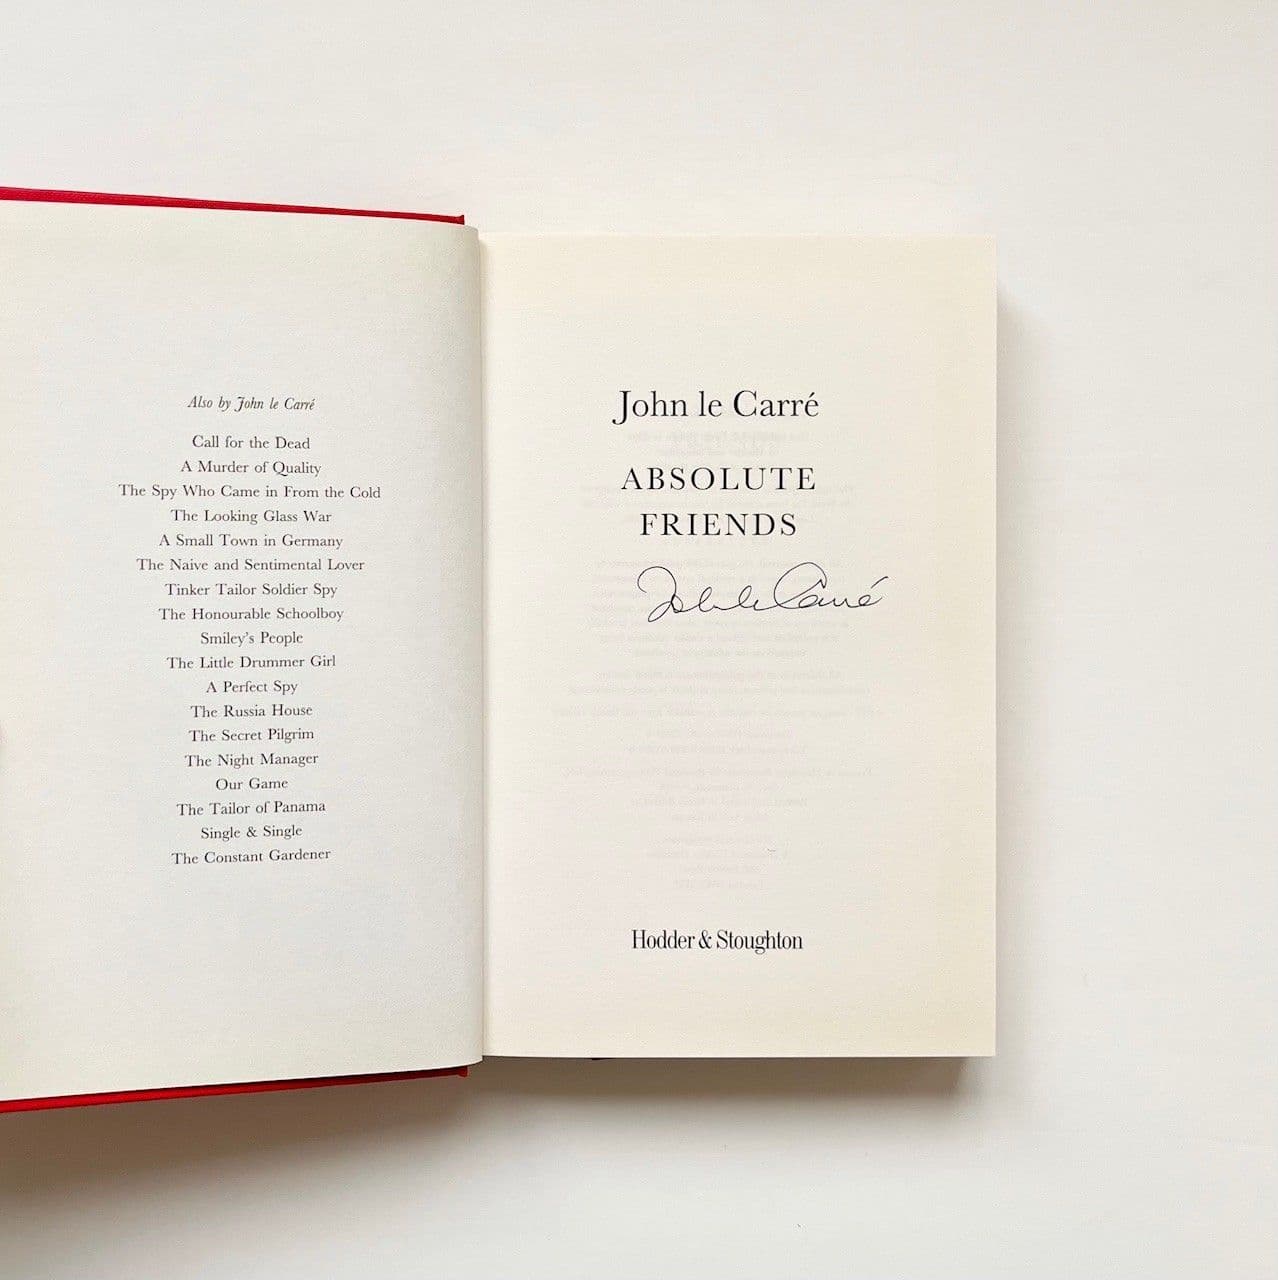 Also by John le Carré
Call for the Dead
A Murder of Quality
The Spy Who Came in From the Cold
The Looking Glass War
A Small Town in Germany
The Naive and Sentimental Lover
Tinker Tailor Soldier Spy
The Honourable Schoolboy
Smiley's People
The Little Drummer Girl
A Perfect Spy
The Russia House
The Secret Pilgrim
The Night Manager
Our Game
The Tailor of Panama
Single & Single
The Constant Gardener
John le Carré
ABSOLUTE
FRIENDS
John le Carré
Hodder & Stoughton